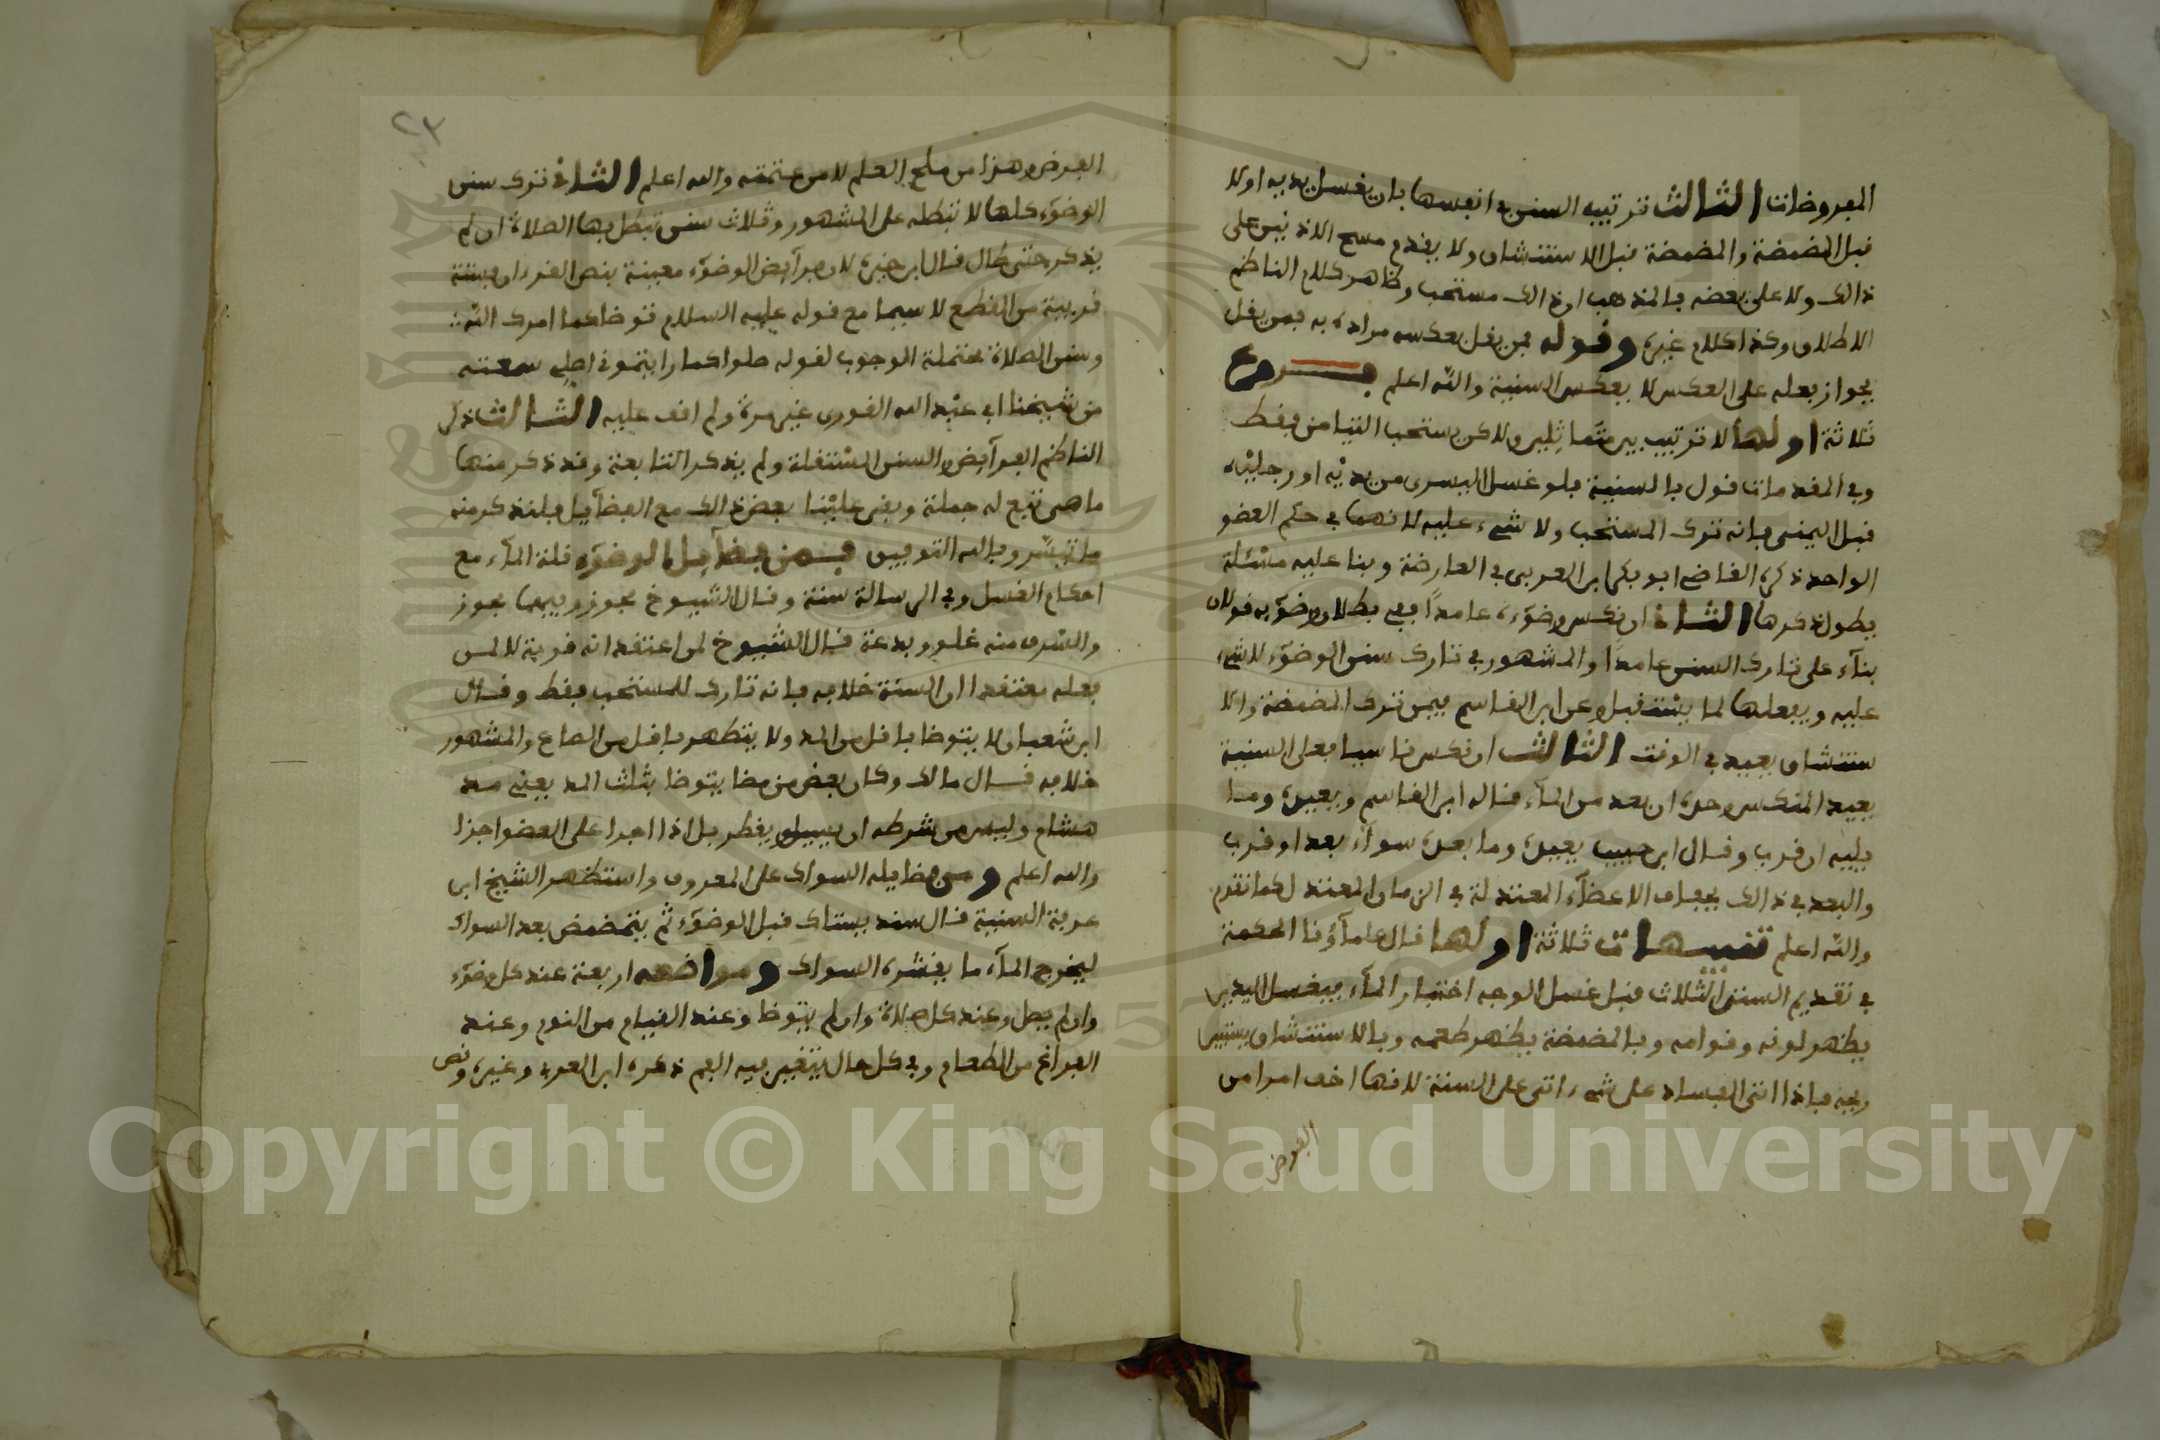 المفروضات الثالث ترتيب السنن في انفسها بان يغسل يديه اولا
قبل المضمضة والمضمضة قبل الاستنشاق ولا يقدم مسح الاذنين على
ذالك ولا على بعضه فالمذهب ان ذالك مستحب وظاهر كلام الناظم
الاطلاق وكذا كلام غيره وقوله فمن يقل بعكسه مراده به فمن يقل
بجواز فعله على العكس لا بعكس السنية والله اعلم فروع
ثلاثة اولها لا ترتيب بين متماثلين ولاكن يستحب التيامن فقط
وفي المقدمات قول بالسنية فلو غسل اليسرى من يديه او رجليه
قبل اليمنى فانه ترك المستحب ولا شيء عليه لانهما في حكم العضو
الواحد ذكره القاضي ابو بكر ابن العربي في العارضة وبنا عليه مسئلة
يطول ذكرها الثاني ان نكس وضوءه عامدا ففي بطلان وضوءه قولان
بناء على تارك السنن عامدا والمشهور في تارك سنن الوضوء لا شيء
عليه ويفعلها لما يستقبل وعن ابن القاسم فيمن ترك المضمضة والا
ستنشاق يعيد في الوقت الثالث ان نكس ناسيا فعلى السنية
يعيد المنكس وحده ان بعد من الماء قاله ابن القاسم ويعيده وما
يليه ان قرب وقال ابن حبيب يعيده وما بعده سواء بعد او قرب
والبعد في ذالك بجفاف الاعضاء المعتدلة في الزمان المعتدل كما تقدم
والله اعلم تنبيهات ثلاثة اولها قال علماؤنا الحكمة
في تقديم السنن الثلاث قبل غسل الوجه اختبار الماء فبغسل اليدين
يظهر لونه وقوامه وبالمضمضة يظهر طعمه وبالاستنشاق يستبين
ريحه فاذا اتى الفساد على شيء اتى على السنة لانها اخف امرا من
الفرض
٢٣
الفرض وهذا من ملح العلم لا من متمته والله اعلم الثاني ترك سنن
الوضوء كلها لا تبطله على المشهور وثلاث سنن تبطل بها الصلاة ان لم
يذكر حتى طال قال ابن حبيب لان فرآيض الوضوء معينة بنص القرءان وسنته
قريبة من القطع لا سيما مع قوله عليه السلام توضا كما امرك الله
وسنن الصلاة محتملة الوجوب لقوله صلوا كما رايتموني اصلي سمعته
من شيخنا ابي عبد الله القوري غير مرة ولم اقف عليه الثالث ذكر
الناظم الفرآيض والسنن المستقلة ولم يذكر التابعة وقد ذكر منها
ما هي تبع له جملة وبقي علينا بعض ذالك مع الفضآيل فلنذكر منه
ما تيسر وبالله التوفيق فمن فضآيل الوضوء قلة الماء مع
احكام الغسل وفي الرسالة سنة وقال الشيوخ يجوز وفيما يجوز
والسرف منه غلو وبدعة قال الشيوخ لمن اعتقد انه قربة لا لمن
فعله معتقدا ان السنة خلافه فانه تارك للمستحب فقط وقال
ابن شعبان لا يتوضا باقل من المد ولا يتطهر باقل من الصاع والمشهور
خلافه قال مالك وكان بعض من مضا يتوضا بثلث المد يعني مد
هشام وليس من شرطه ان يسيل او يقطر بل اذا اجرا على العضو اجزا
والله اعلم ومن فضايله السواك على المعروف واستظهر الشيخ ابن
عرفة السنية قال سند يستاك قبل الوضوء ثم يتمضمض بعد السواك
ليخرج الماء ما يقشره السواك ومواضعه اربعة عند كل وضوء
وان لم يصل وعند كل صلاة وان لم يتوضا وعند القيام من النوم وعند
الفراغ من الطعام وفي كل حال يتغير فيه الفم ذكره ابن العربي وغيره ونص
Copyright © King Saud University